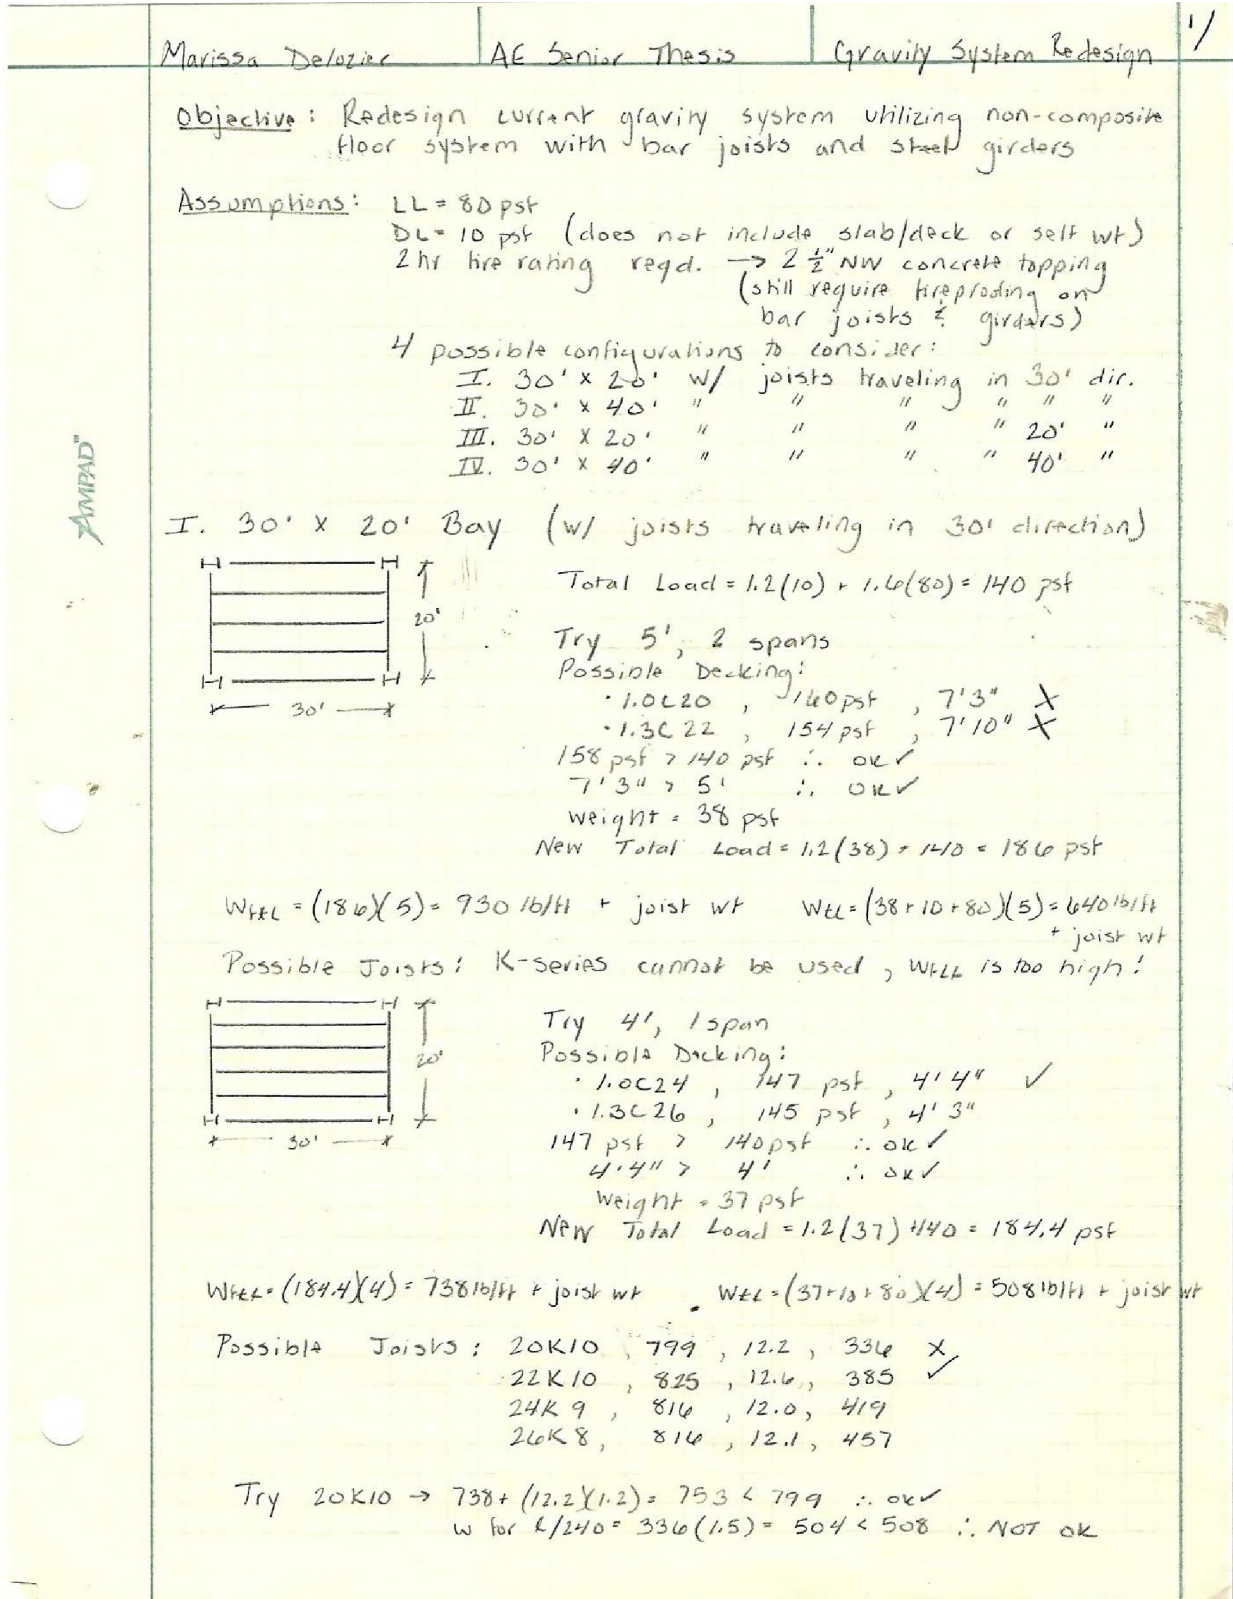 Marissa Delozier AE Senior Thesis Gravity System Redesign 1/
Objective: Redesign current gravity system utilizing non-composite
floor system with bar joists and steel girders
Assumptions: LL = 80 psf
DL = 10 psf (does not include slab/deck or self wt)
2 hr fire rating reqd. → 2 1/2" NW concrete topping
(still require fireproofing on
bar joists & girders)
4 possible configurations to consider:
I. 30' x 20' w/ joists traveling in 30' dir.
II. 30' x 40' " " " " " "
III. 30' x 20' " " " " 20' "
IV. 30' x 40' " " " " 40' "
AMPAD™
I. 30' x 20' Bay (w/ joists traveling in 30' direction)
20'
30'
Total Load = 1.2(10) + 1.6(80) = 140 psf
Try 5', 2 spans
Possible Decking:
· 1.0C20, 160 psf, 7'3" X
· 1.3C22, 154 psf, 7'10" X
158 psf > 140 psf ∴ ok ✓
7'3" > 5' ∴ ok ✓
weight = 38 psf
New Total Load = 1.2(38) + 140 = 186 psf
WFLL = (186)(5) = 930 lb/ft + joist wt WLL = (38+10+80)(5) = 640 lb/ft
+ joist wt
Possible Joists: K-series cannot be used, WFLL is too high!
20'
30'
Try 4', 1 span
Possible Decking:
· 1.0C24, 147 psf, 4'4" ✓
· 1.3C26, 145 psf, 4'3"
147 psf > 140 psf ∴ ok ✓
4'4" > 4' ∴ ok ✓
Weight = 37 psf
New Total Load = 1.2(37) + 140 = 184.4 psf
WFLL = (184.4)(4) = 738 lb/ft + joist wt WLL = (37+10+80)(4) = 508 lb/ft + joist wt
Possible Joists: 20K10, 799, 12.2, 336 X
22K10, 825, 12.6, 385 ✓
24K9, 816, 12.0, 419
26K8, 816, 12.1, 457
Try 20K10 → 738 + (12.2)(1.2) = 753 < 799 ∴ ok ✓
w for ℓ/240 = 336(1.5) = 504 < 508 ∴ NOT OK